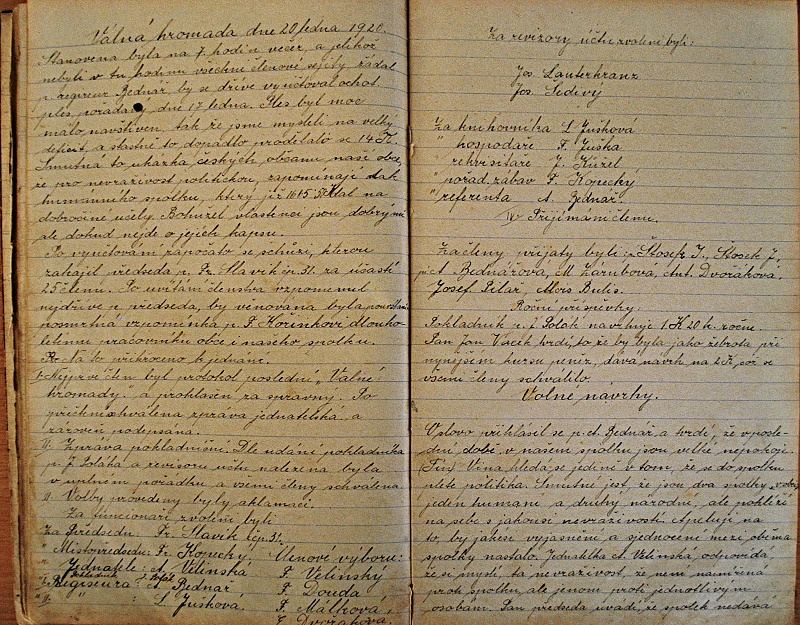 Válná hromada dne 20 ledna 1920.
Stanovena byla na 7 hodin večer, a jelikož
nebyli v tu hodinu všichni členové sejíti žádal
p. regiseur Bednář by se dříve vyúčtoval ochot.
ples, pořádaný dne 17 ledna. Ples byl moc
málo navštíven, tak že jsme mysleli na velký
deficit, a šťastně to dopadlo prodělalo se 14 K.
Smutná to ukázka českých občanů naší obce,
že pro nevraživost politickou, zapomínají tak
humánního spolku, který již dal na
dobročiné účely. Bohužel vlastenci jsou dobrými
ale dokud nejde o jejich kapsu.
Po vyúčtování započato se schůzí, kterou
zahájil předseda p. Fr. Slavík čp. 31. za účasti
25 členů. Po uvítání členstva vzpomenul
nejdříve p. předseda, by věnována byla
posmrtná vzpomínka p. F. Kořínkovi, dlouho-
letému pracovníku obce i našeho spolku.
Na to přikročeno k jednání.
I. Nejprve čten byl protokol poslední „Valné
hromady" a prohlášen za správný. Po
přečtení schválena zpráva jednatelská a
zároveň podepsána.
II. Zpráva pokladniční. Dle udání pokladníka
p. J. Poláka a revisorů účtů nalezena byla
v úplném pořádku a všemi členy schválena.
Volby provedeny byly aklamací.
Za funcionáře zvoleni byli:
Za Předsedu: Fr. Slavík čp. 31.
" Místopředsedu: F. Kopecký. Členové výboru:
" Jednatele: A. Velinská F. Velinský
Pokladník: Polák
" Regiseura: A. Bednář F. Douda
" " L. Jušková. F. Málková,
Dvořáková.
Za revizory účtů zvoleni byli:
Jos. Lauterkranz
Jos. Šedivý
Za knihovníka L. Jušková
" hospodáře F. Juska
" rekvisitáře J. Kužel
" pořad. zábav F. Kopecký
" referenta A. Bednář.
IV. Přijímání členů.
Za členy přijaty byli: Stosek J., Stosek J.,
A. Bednářova, M. Zarubova, Ant. Dvořáková,
Josef Pilař, Mors Bulis.
Roční příspěvky:
Pokladník p. J. Polák navrhuje 1 K 20 h. ročně.
Pan Jan Vacek tvrdí, to že by byla jako žebrota při
nynějším kursu peněz, dává návrh na 2 K, což se
všemi členy schválilo.
Volné návrhy.
O slovo přihlásil se p. A. Bednář a tvrdí, že v posle-
dní době v našem spolku jsou velké nepokoje.
Vina hledá se jedině v tom, že se do spolku
plete politika. Smutné jest, že jsou dva spolky v obci
jeden humání a druhý národní, ale pohlíží
na sebe s jakousi nevraživostí. Apeluji na
to, by jakési vyjasnění a sjednocení mezi oběma
spolky nastalo. Jednatelka A. Velinská, odpovídá,
že si myslí, tá nevraživost, že není namířená
proti spolku, ale jenom proti jednotlivým
osobám. Pan předseda uvádí, že spolek nedává